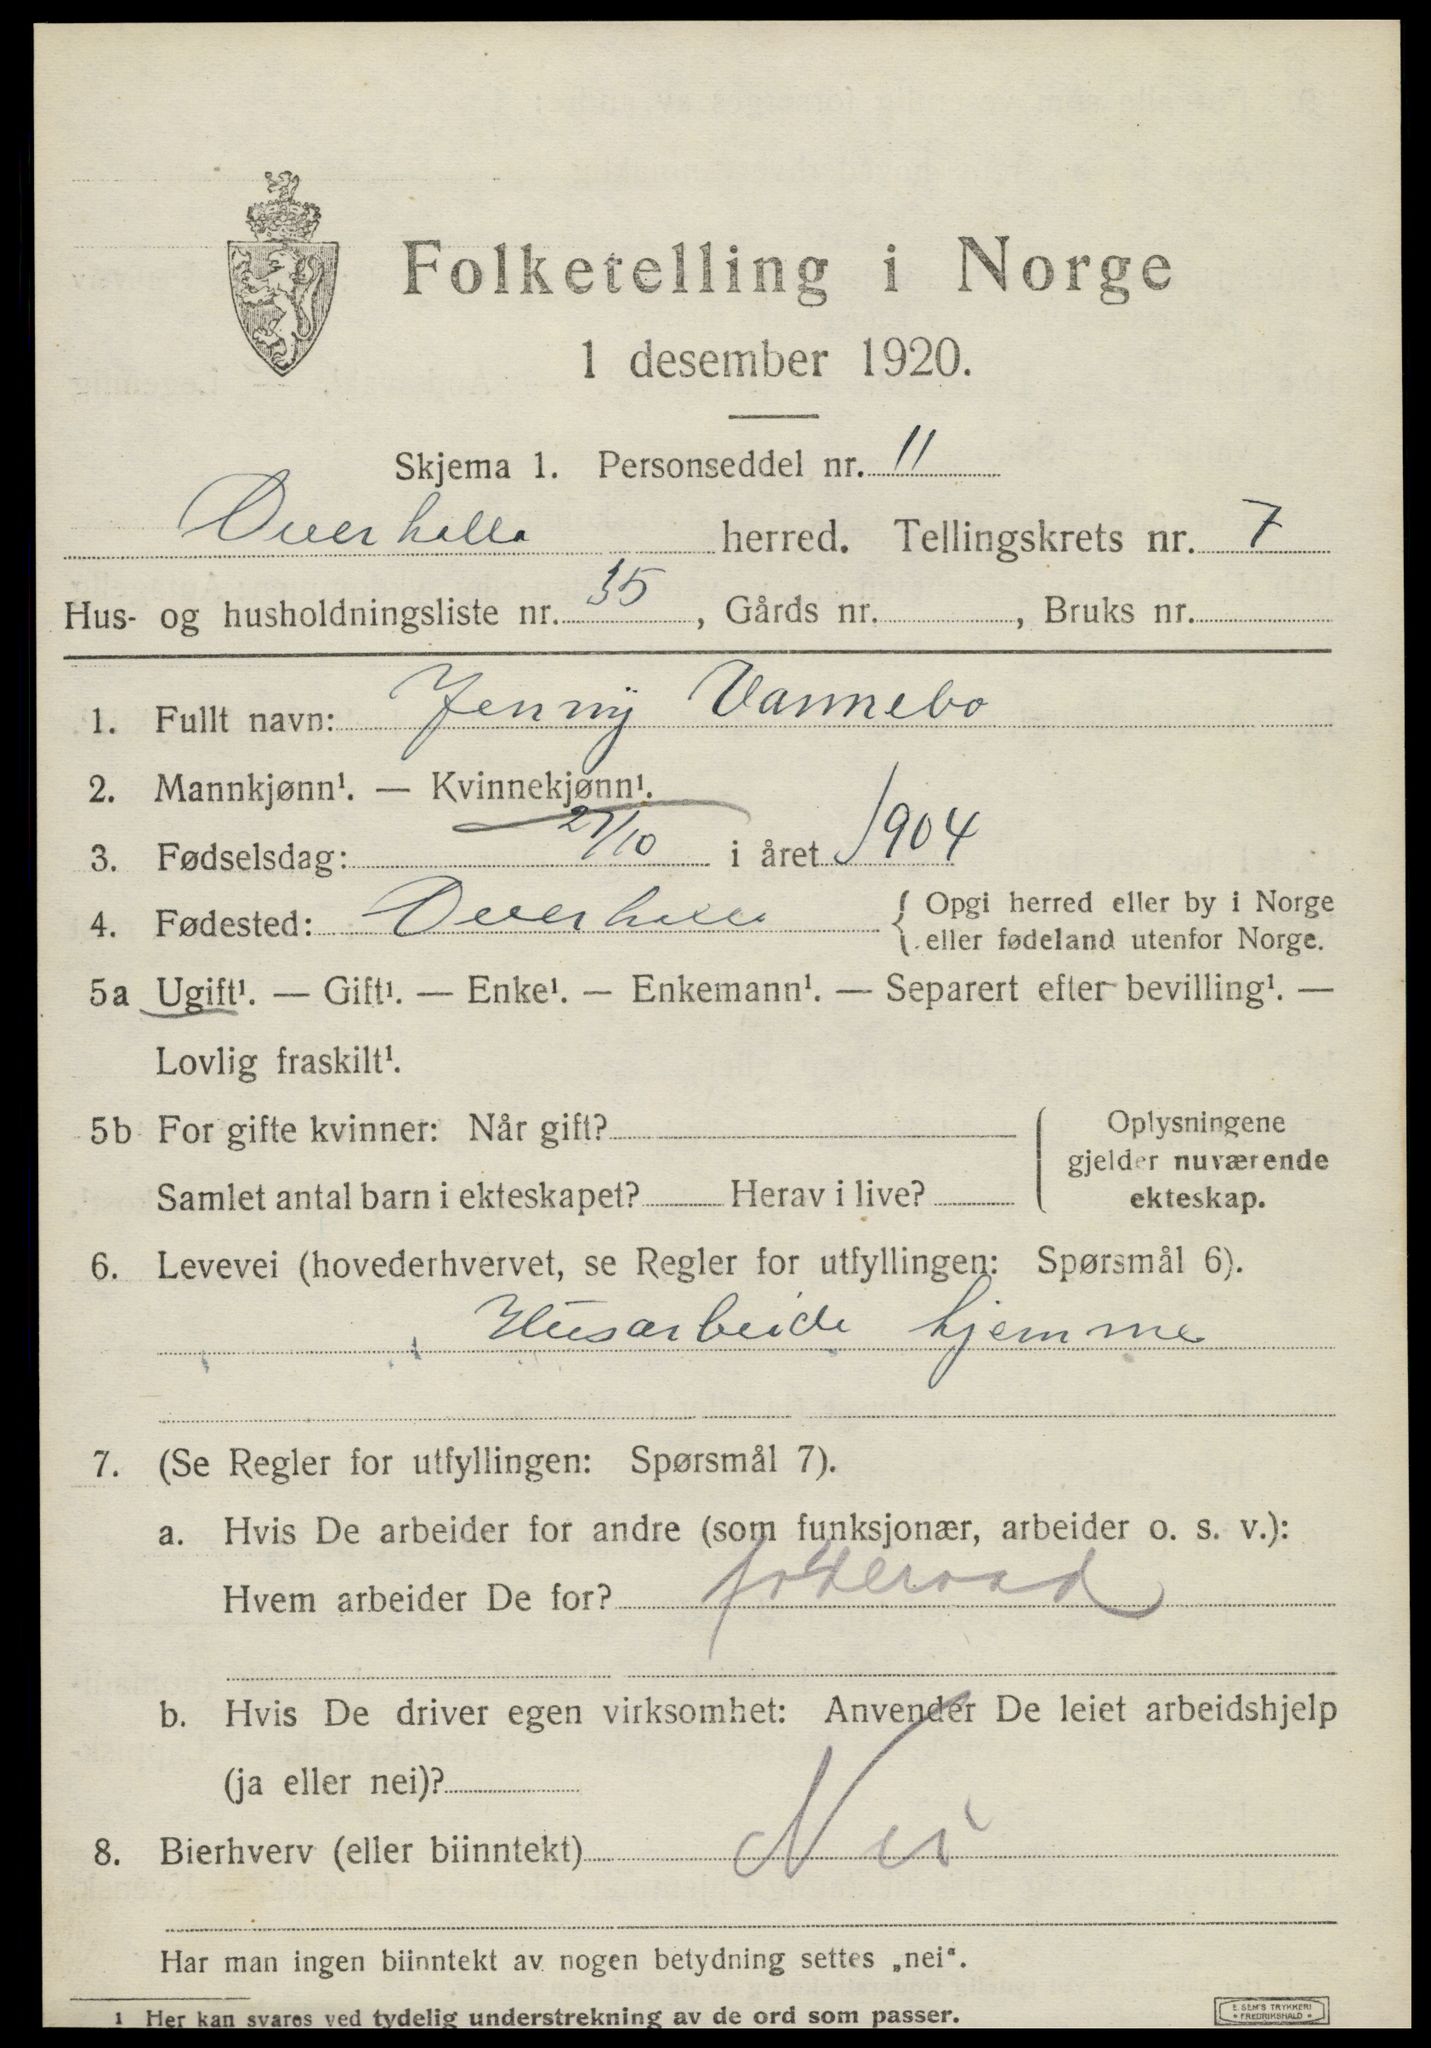 Folketelling i Norge
1 desember 1920.
Skjema 1. Personseddel nr. 11
Overhalla herred. Tellingskrets nr. 7
Hus- og husholdningsliste nr. 35, Gårds nr. , Bruks nr.
1. Fullt navn: Jenny Vannebo
2. Mannkjønn¹. — Kvinnekjønn¹.
3. Fødselsdag: 27/10 i året 1904
4. Fødested: Overhalla { Opgi herred eller by i Norge
eller fødeland utenfor Norge.
5a Ugift¹. — Gift¹. — Enke¹. — Enkemann¹. — Separert efter bevilling¹. —
Lovlig fraskilt¹.
5b For gifte kvinner: Når gift?
Samlet antal barn i ekteskapet? Herav i live?
Oplysningene
gjelder nuværende
ekteskap.
6. Levevei (hovederhvervet, se Regler for utfyllingen: Spørsmål 6).
Husarbeide hjemme
7. (Se Regler for utfyllingen: Spørsmål 7).
a. Hvis De arbeider for andre (som funksjonær, arbeider o. s. v.):
Hvem arbeider De for? foderaad
b. Hvis De driver egen virksomhet: Anvender De leiet arbeidshjelp
(ja eller nei)?
8. Bierhverv (eller biinntekt) Nei
Har man ingen biinntekt av nogen betydning settes „nei“.
1 Her kan svares ved tydelig understrekning av de ord som passer.
E. SEM'S TRYKKERI
• FREDRIKSHALD •